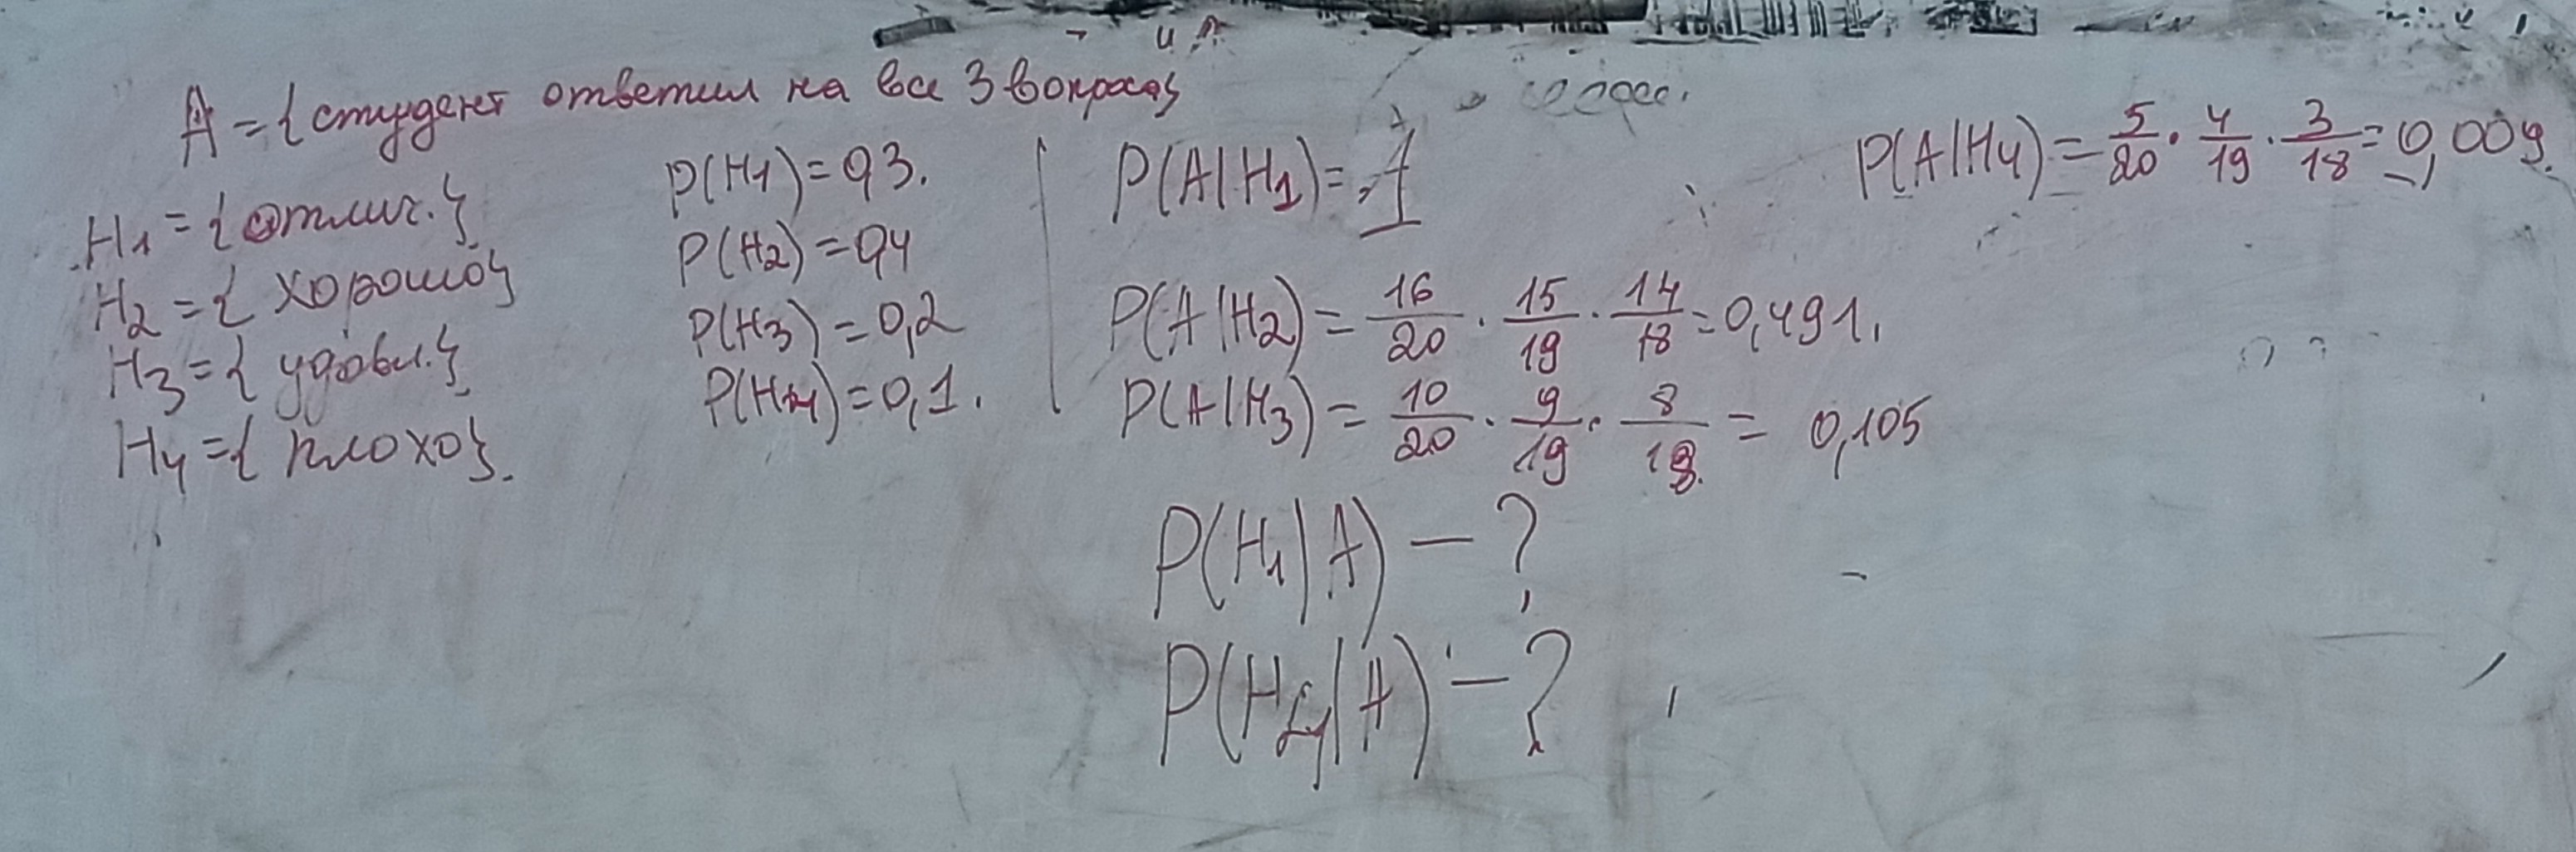 A = {студент ответил на все 3 вопроса}
H1 = {отлич.}
H2 = {хорошо}
H3 = {удовл.}
H4 = {плохо}.
P(H1) = 0,3.
P(H2) = 0,4
P(H3) = 0,2
P(H4) = 0,1.
P(A|H1) = 1
P(A|H2) = 16/20 · 15/19 · 14/18 = 0,491.
P(A|H3) = 10/20 · 9/19 · 8/18 = 0,105
P(A|H4) = 5/20 · 4/19 · 3/18 = 0,009.
P(H1|A) — ?
P(H4|A) — ?